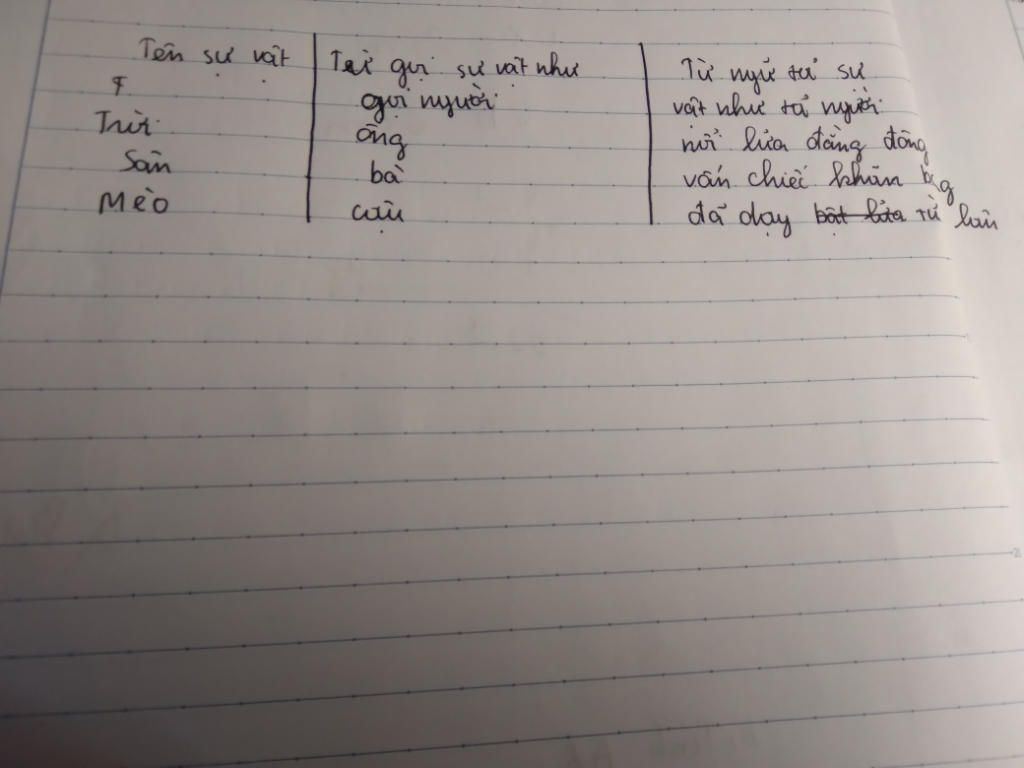 Tên sự vật | Từ gọi sự vật như | Từ ngữ tả sự
gọi người | vật như tả người
Trời | ông | nổi lửa đằng đông
Sân | bà | vấn chiếc khăn
Mèo | cậu | đã dạy bật lửa từ lâu